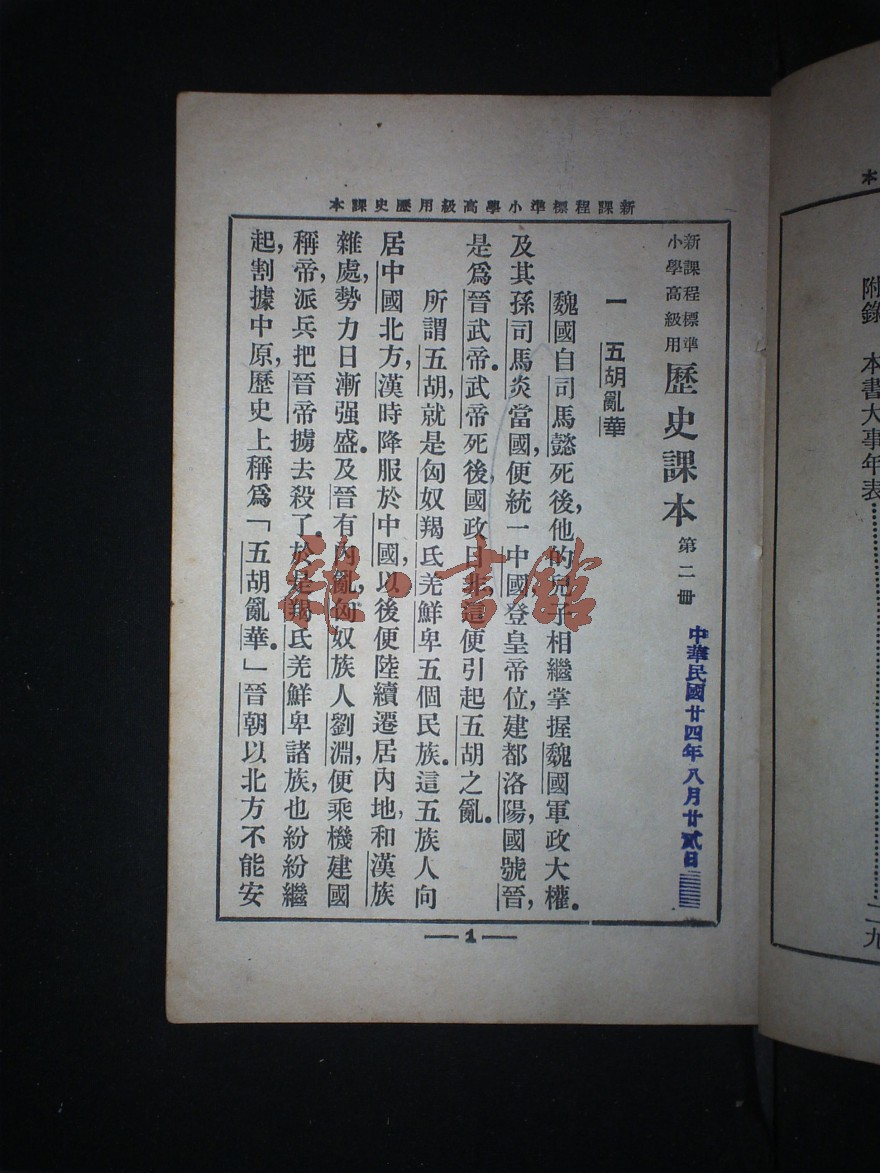 新課程標準小學高級用歷史課本
新課程標準
小學高級用
歷史課本 第二冊
中華民國廿四年八月廿貳日
一 五胡亂華
魏國自司馬懿死後,他的兒子相繼掌握魏國軍政大權。
及其孫司馬炎當國,便統一中國,登皇帝位,建都洛陽,國號晉,
是爲晉武帝。武帝死後,國政日非,這便引起五胡之亂。
所謂五胡,就是匈奴羯氐羌鮮卑五個民族。這五族人向
居中國北方,漢時降服於中國,以後便陸續遷居內地,和漢族
雜處,勢力日漸强盛。及晉有內亂,匈奴族人劉淵,便乘機建國
稱帝,派兵把晉帝擄去殺了。於是羯氐羌鮮卑諸族,也紛紛繼
起,割據中原,歷史上稱爲「五胡亂華。」晉朝以北方不能安
—1—
雜·書館
本
附錄 本書大事年表……二九